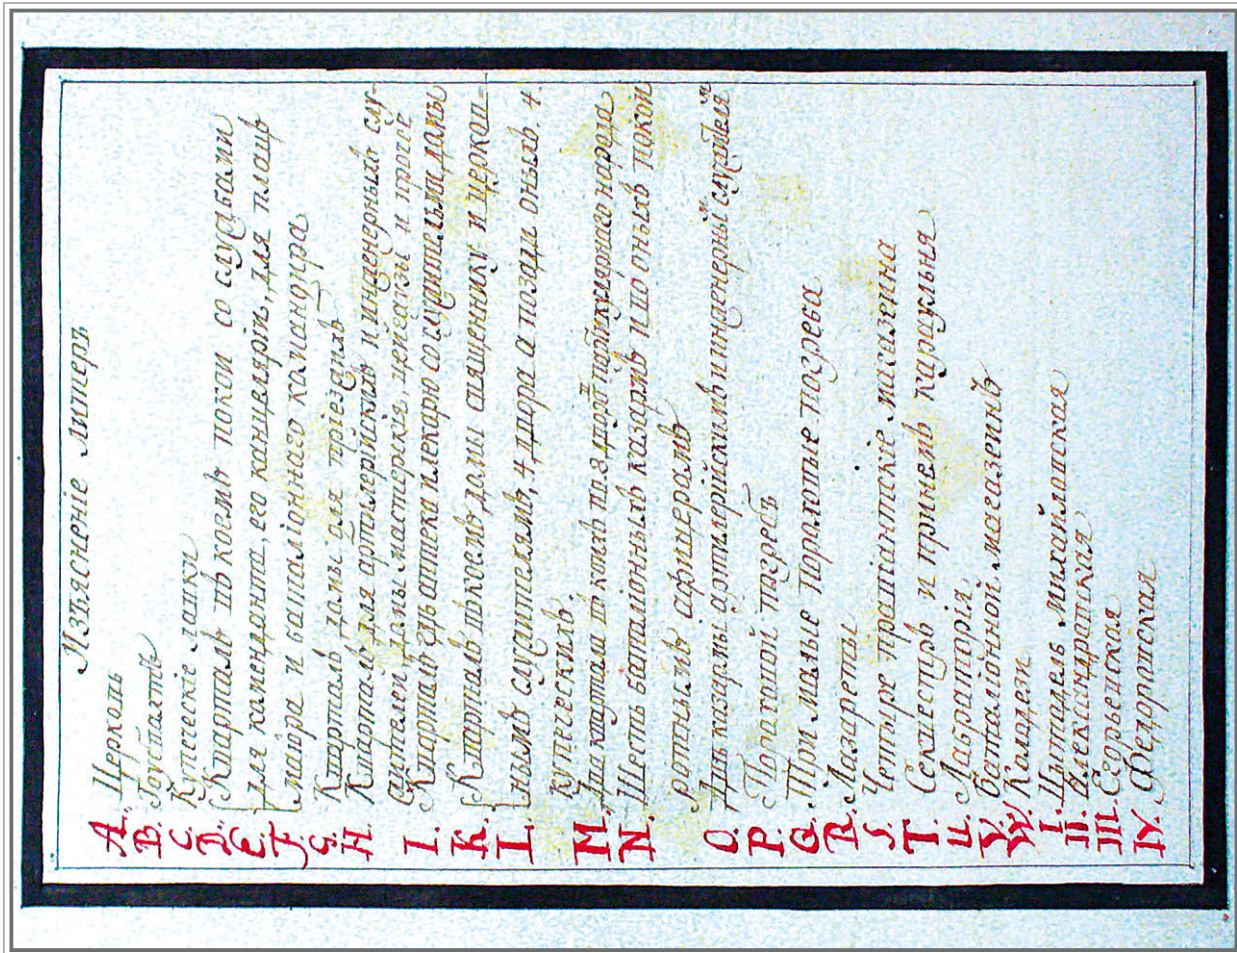 Изъясненіе литеръ
A. Церковь
B. Гоубвахтъ
C. Купеческіе лавки
D. Кварталъ въ коемъ покои со службами
E. для камендонта, его канцелярій, для плацъ
F. маіора и баталіоннаго командира
G. Кварталъ домы для пріезднхъ
H. Кварталъ для артилерійскихъ и инденерныхъ слу-
жителей домы мастерскія, цейгаузы и прочіе
I. Кварталъ гдъ аптека илекарю со служительми домы
K. Кварталъ въкоемъ домы священнику и церков-
L. нымъ служителямъ, 4 двора а позади оныхъ. 4
купеческихъ.
M. Два квартала въ коихъ по 8 дворъ партикулярнаго народа
N. Шесть баталіонныхъ казармъ и по оныхъ покои
ротнымъ афицерамъ
O. Двъ казармы артилерійскимъ и инженернымъ служителямъ
P. Пороховой погребъ
Q. Три малые Пороховые погреба
R. Лазареты
S. Четыре правіантскіе магазеина
T. Секаестръ и принемъ караульня
U. Лабраторія
V. баталіонной магазеинъ
W. Каладези
I. Цитодель михайловская
II. Александравская
III. Егорьевская
IV. Федоровская